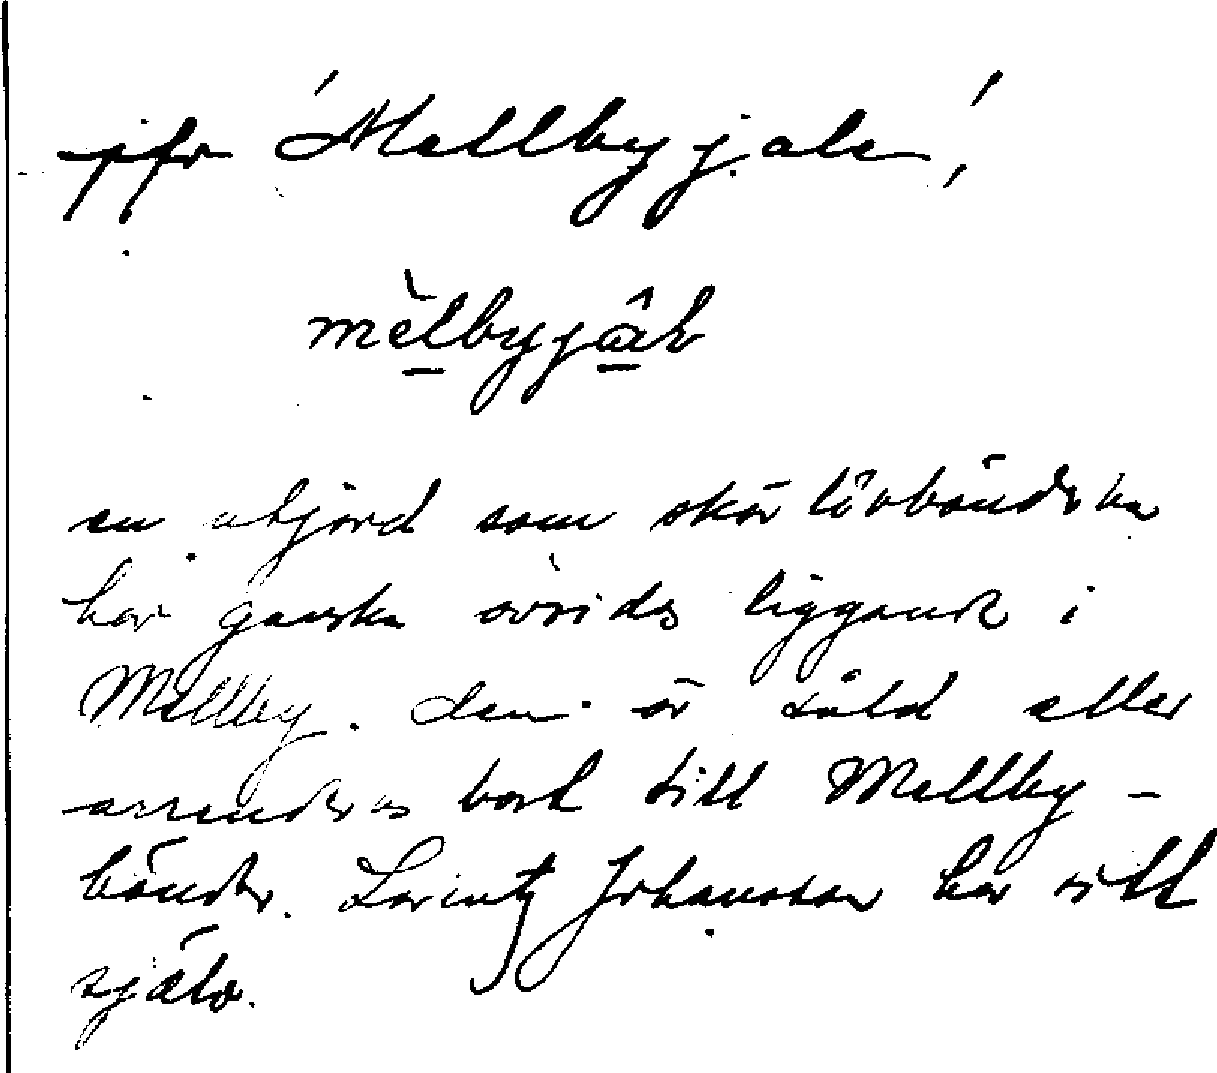 jfr 'Mellbyjale'
mèlbyjâl
en utjord som skörlövbönderna
har ganska avsides liggande i
Mellby. den är såld eller
arrenderas bort till Mellby-
bönder. Lorintz Johansson har sitt
själv.